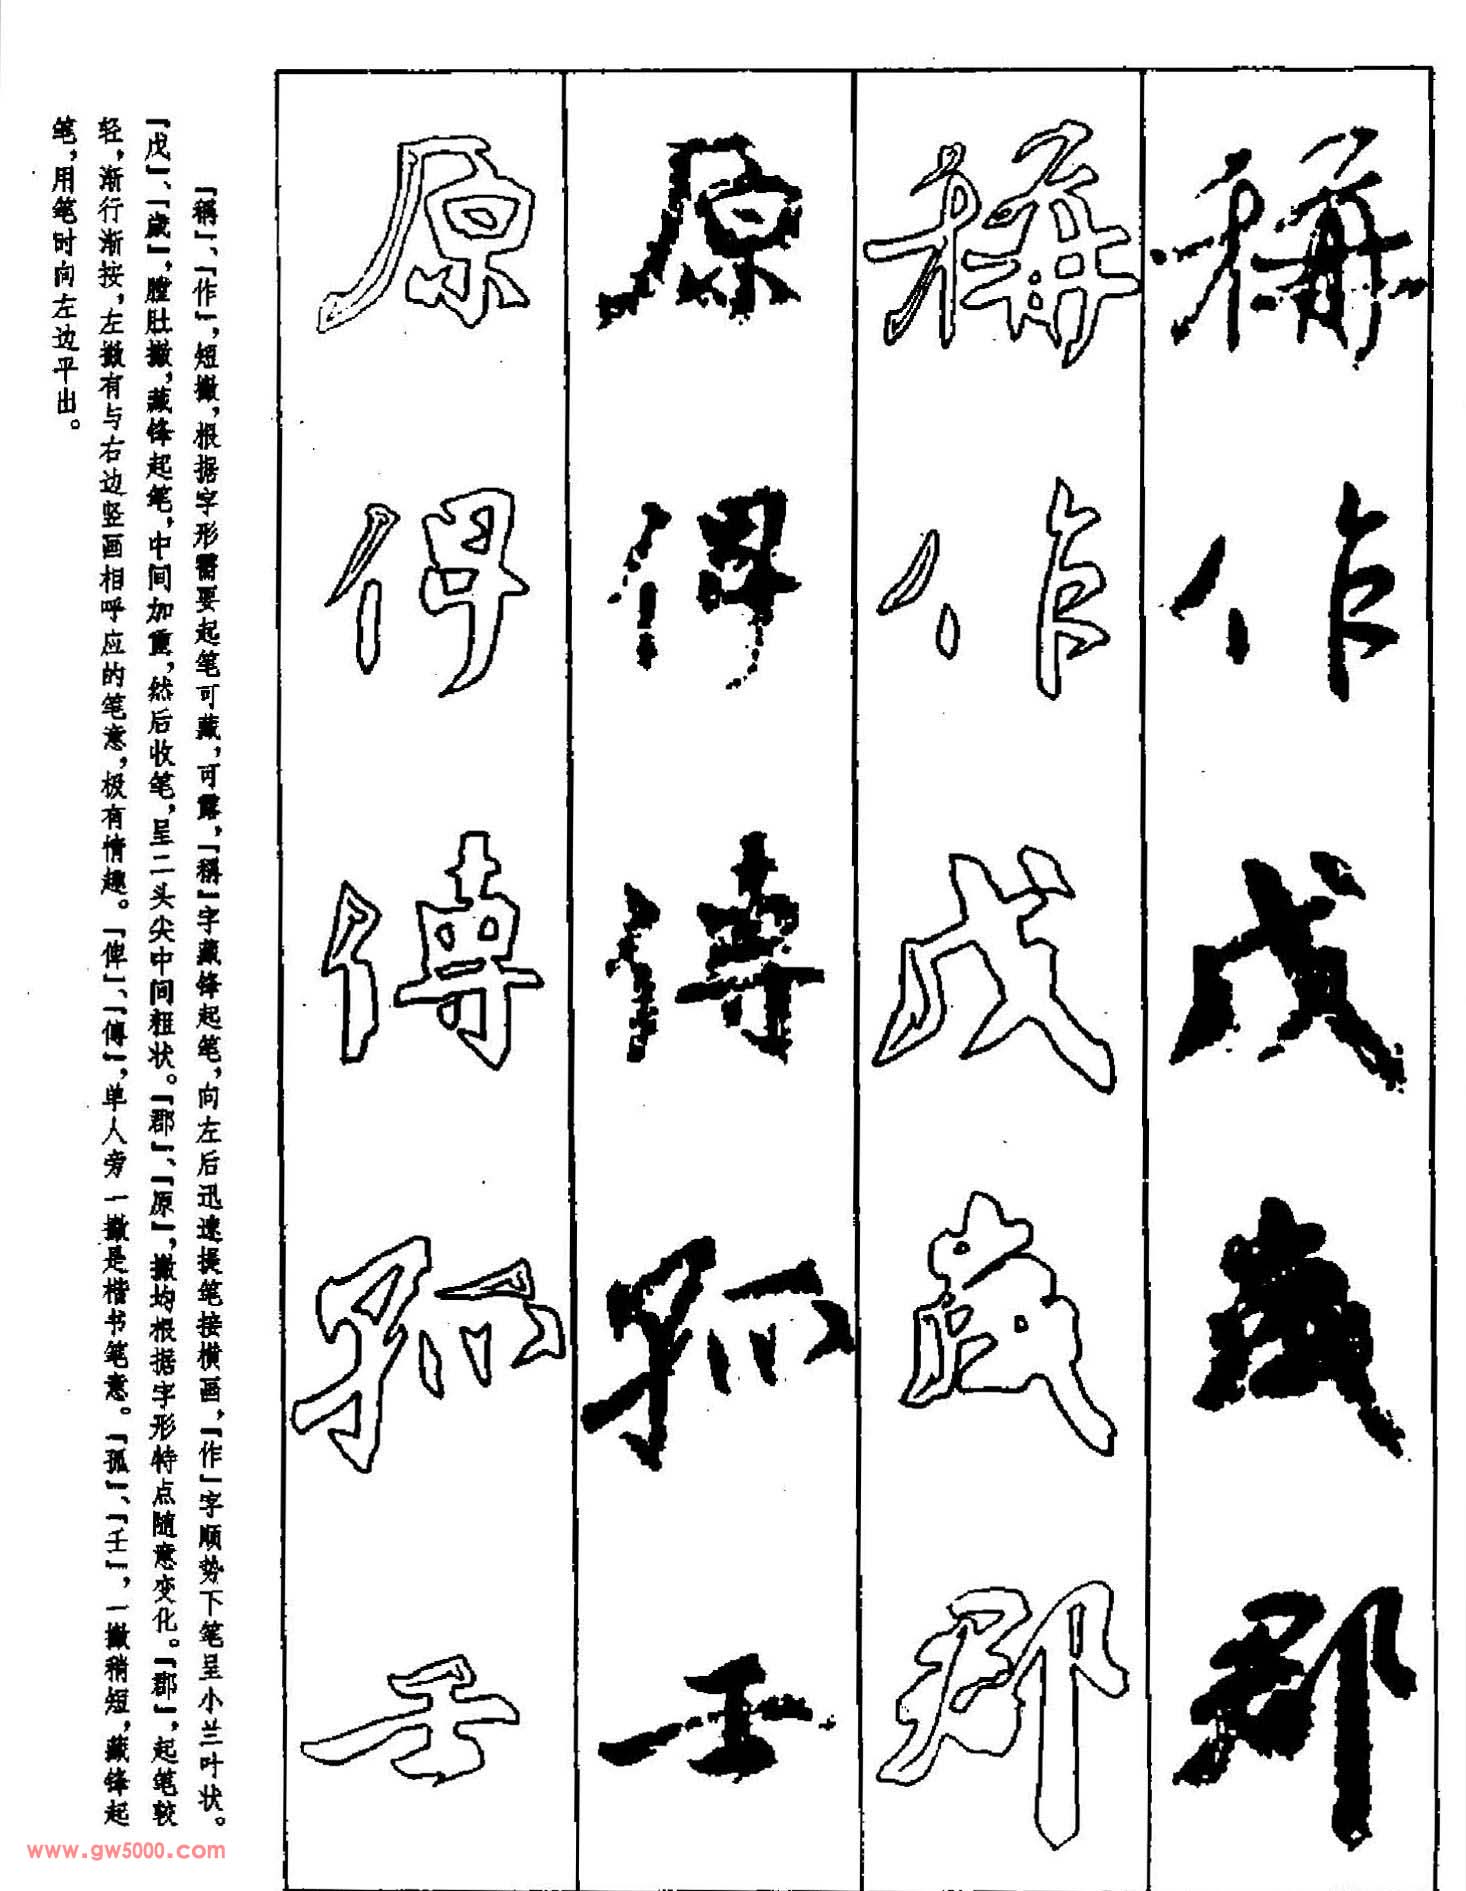 稱作戊歲郡
稱作戊歲郡
原俾傳孤壬
原俾傳孤壬
『稱』、『作』，短撇，根据字形需要起笔可藏，可露，『稱』字藏锋起笔，向左后迅速提笔接横画，『作』字顺势下笔呈小兰叶状。
『戊』、『歲』，膛肚撇，藏锋起笔，中间加重，然后收笔，呈二头尖中间粗状。『郡』、『原』，撇均根据字形特点随意变化。『郡』，起笔较
轻，渐行渐按，左撇有与右边竖画相呼应的笔意，极有情趣。『俾』、『傳』，单人旁一撇是楷书笔意。『孤』、『壬』，一撇稍短，藏锋起
笔，用笔时向左边平出。
www.gw5000.com